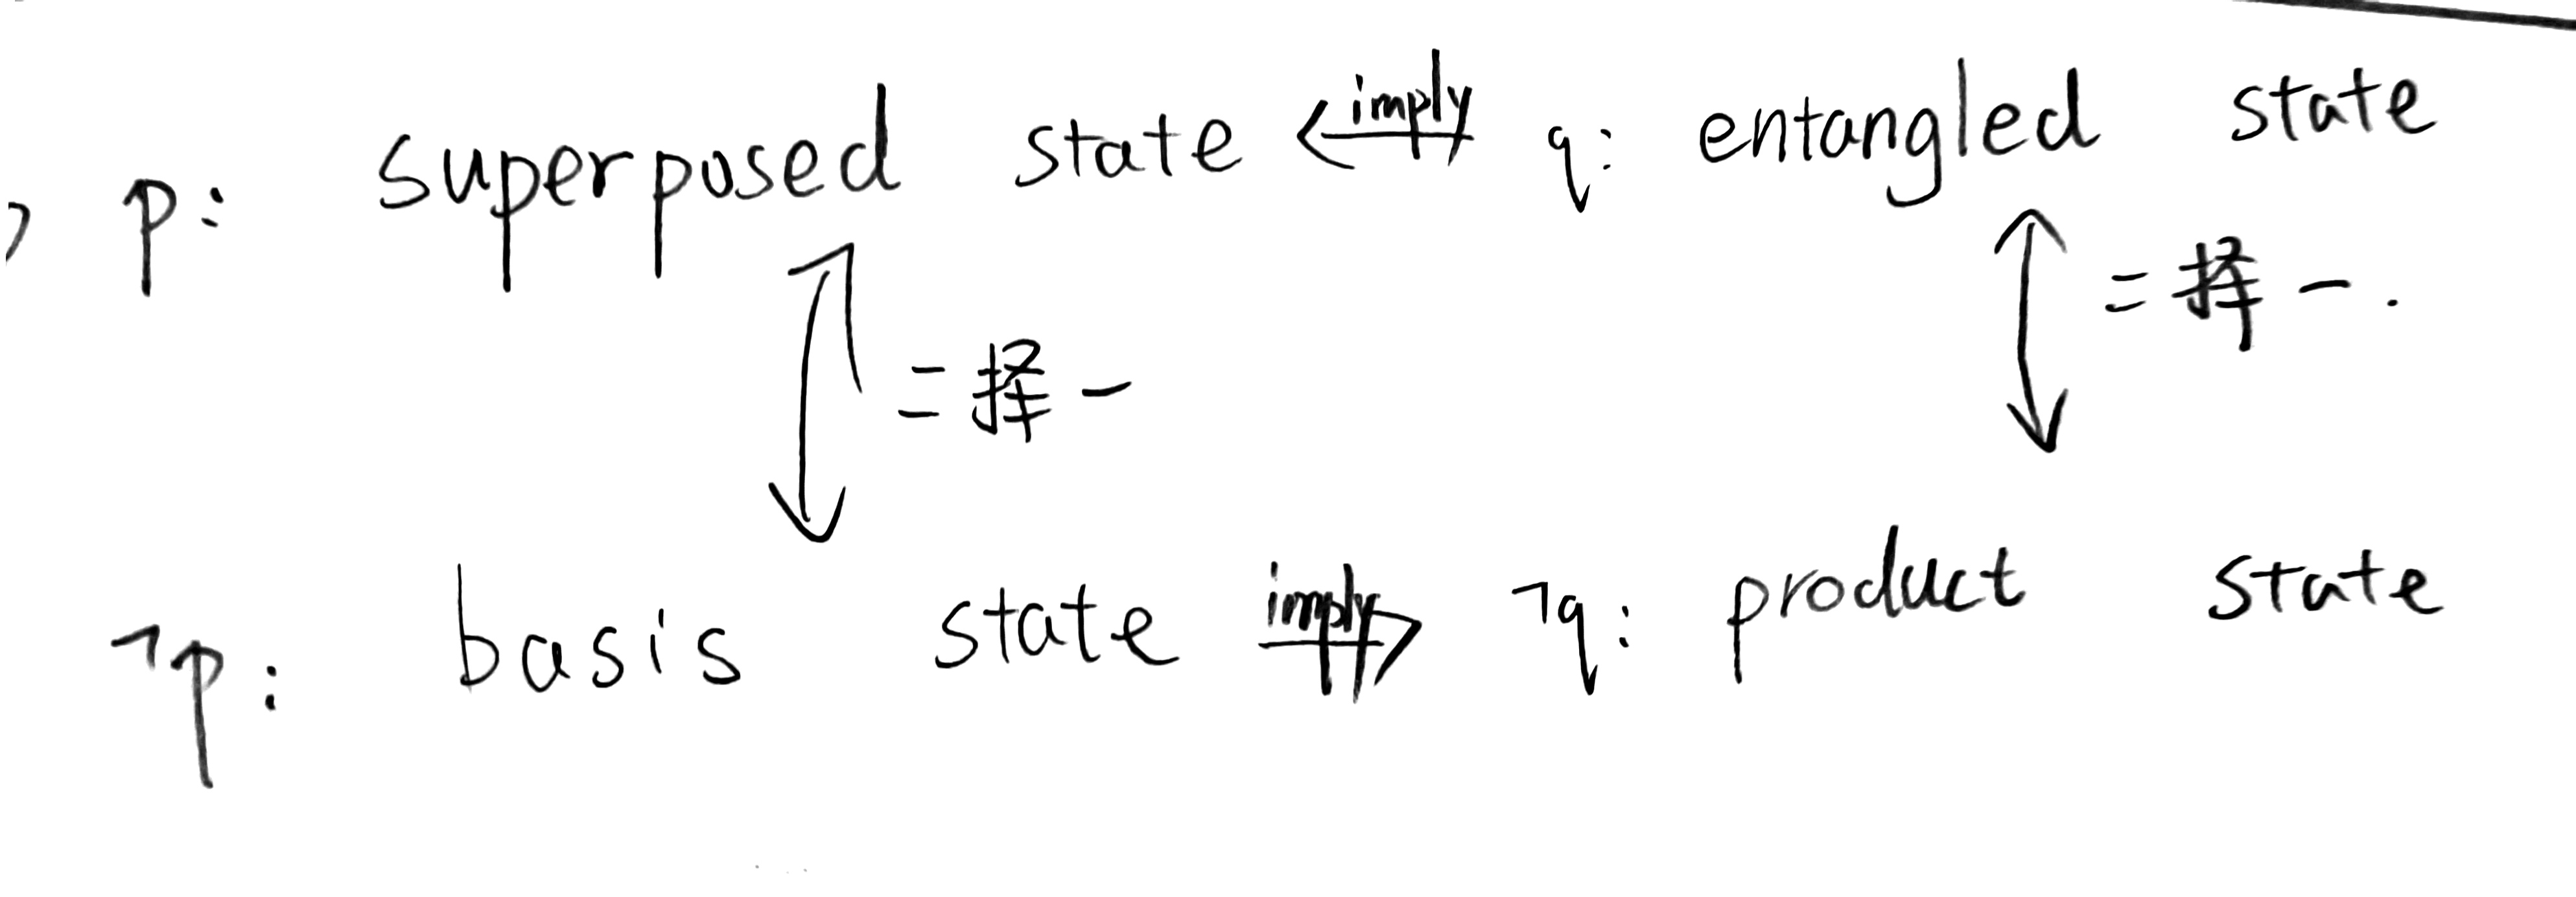 p: superposed state ⟸ imply q: entangled state
= 择一 = 择一.
¬p: basis state imply ⟹ ¬q: product state